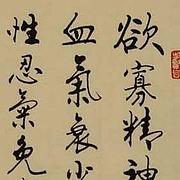 欲寡精神
血氣衰少
性忍氣免